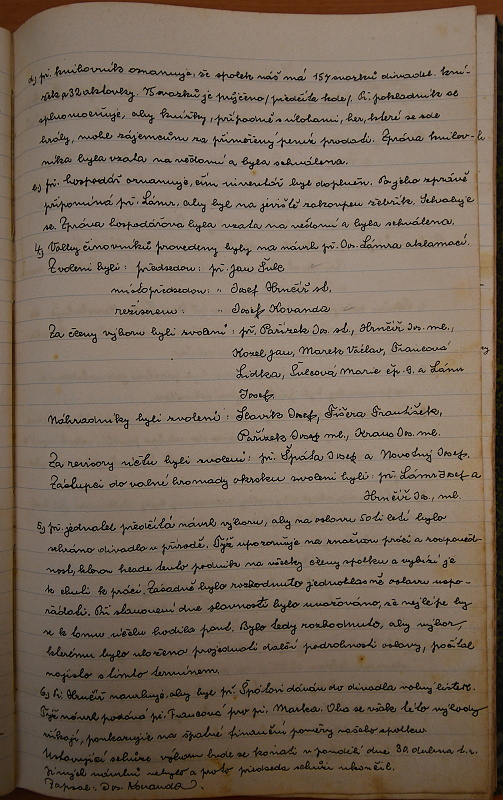 d) př. knihovník oznamuje, že spolek náš má 157 svazků divadel. kni-
žek a 32 aktovky. 75 svazků je půjčeno / předčítá kde /. Př. pokladník se
splnomocňuje, aby knížky, případně s úlohami, her, které se zde
hrály, mohl zájemcům za přiměřený peníz prodati. Zpráva knihov-
níka byla vzata na vědomí a byla schválena.
e) př. hospodář oznamuje, čím inventář byl doplněn. Po jeho zprávě
připomíná př. Lánr, aby byl na jeviště zakoupen žebřík. Schvaluje
se. Zpráva hospodářova byla vzata na vědomí a byla schválena.
4) Volby činovníků provedeny byly na návrh př. Jos. Lánra aklamací.
Zvoleni byli: předsedou: př. Jan Šulc
místopředsedou: " Josef Hrnčíř st.
režisérem: " Josef Kovanda
Za členy výboru byli zvoleni: př. Pařízek Jos. st., Hrnčíř Jos. ml.,
Kozel Jan, Marek Václav, Francová
Lidka, Šulcová Marie čp. 9. a Lánr
Josef.
Náhradníky byli zvoleni: Slavík Josef, Fišera František,
Pařízek Josef ml., Kraus Jos. ml.
Za revisory účtu byli zvoleni: př. Špáta Josef a Novotný Josef.
Zástupci do valné hromady okrsku zvoleni byli: př. Lánr Josef a
Hrnčíř Jos., ml.
5) př. jednatel předčítá návrh výboru, aby na oslavu 50ti letí bylo
sehráno divadlo v přírodě. Týž upozorňuje na značnou práci a zodpověd-
nost, kterou klade tento podnik na všecky členy spolku a vybízí je
k chuti k práci. Zásadně bylo rozhodnuto jednohlasně oslavu uspo-
řádati. Při stanovení dne slavnosti bylo uvažováno, že nejlépe by
se k tomu účelu hodila pout. Bylo tedy rozhodnuto, aby výbor,
kterému bylo uloženo projednati další podrobnosti oslavy, počítal
najisto s tímto termínem.
6) Př. Hrnčíř navrhuje, aby byl př. Špátovi dáván do divadla volný lístek.
Týž návrh podává př. Francová pro př. Marka. Oba se však této výhody
zříkají, poukazujíce na špatné finanční poměry našeho spolku.
Ustavující schůze výboru bude se konati v pondělí dne 30. dubna t. r.
Jiných návrhů nebylo a proto předseda schůzi ukončil.
Zapsal: Jos. Kovanda.